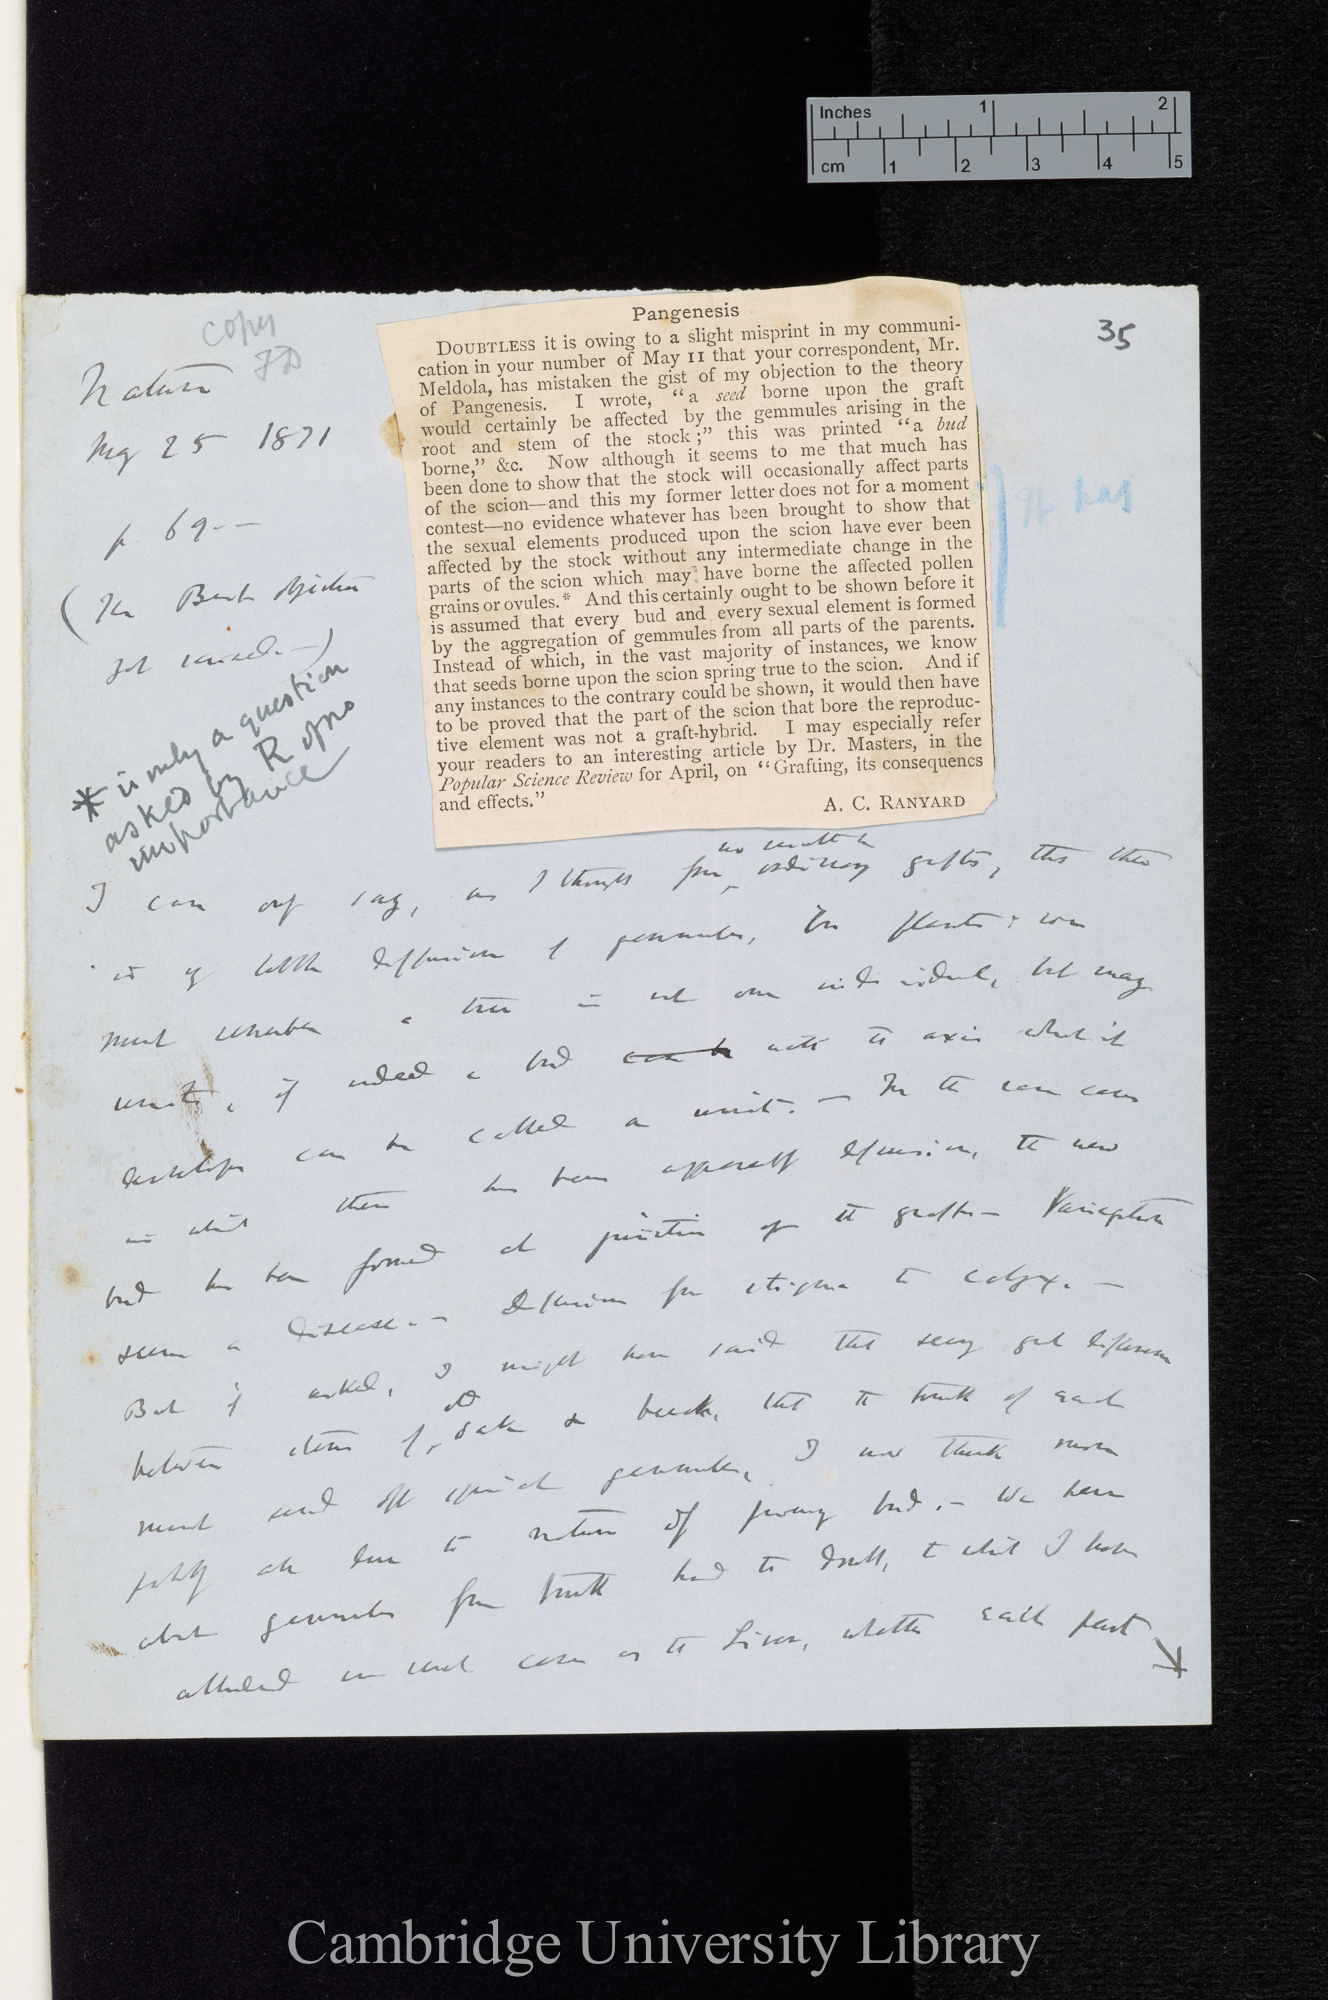 Inches 1 2
cm 1 2 3 4 5
copy
FD
35
Nature
May 25 1871
p. 69 —
(The Best objection
yet raised —)
* is only a question
asked by R of no
importance
It has
Pangenesis
DOUBTLESS it is owing to a slight misprint in my communi-
cation in your number of May 11 that your correspondent, Mr.
Meldola, has mistaken the gist of my objection to the theory
of Pangenesis. I wrote, "a seed borne upon the graft
would certainly be affected by the gemmules arising in the
root and stem of the stock;" this was printed "a bud
borne," &c. Now although it seems to me that much has
been done to show that the stock will occasionally affect parts
of the scion—and this my former letter does not for a moment
contest—no evidence whatever has been brought to show that
the sexual elements produced upon the scion have ever been
affected by the stock without any intermediate change in the
parts of the scion which may have borne the affected pollen
grains or ovules.* And this certainly ought to be shown before it
is assumed that every bud and every sexual element is formed
by the aggregation of gemmules from all parts of the parents.
Instead of which, in the vast majority of instances, we know
that seeds borne upon the scion spring true to the scion. And if
any instances to the contrary could be shown, it would then have
to be proved that the part of the scion that bore the reproduc-
tive element was not a graft-hybrid. I may especially refer
your readers to an interesting article by Dr. Masters, in the
Popular Science Review for April, on "Grafting, its consequences
and effects."
A. C. RANYARD
I can only say, as I thought from ordinary grafts, that there
is very little diffusion of gemmules, in plants: we
must remember a tree is not one individual, but many
units, if indeed a bud can be with the axis which it
develops can be called a unit. — In the rare cases
in which there has been apparently diffusion, the new
bud has been formed at junction of the grafts — Variegation
seems a disease. — Diffusion from stigma to calyx. —
But if asked, I might have said that seeing great difference
between stems of old oak & beech, that the trunk of each
must send off special gemmules, I now think more
probably all due to nature of young bud. — We have
about gemmules from trunk had to dwell, to which I have
alluded in such cases as the Liver, whether each part
Cambridge University Library